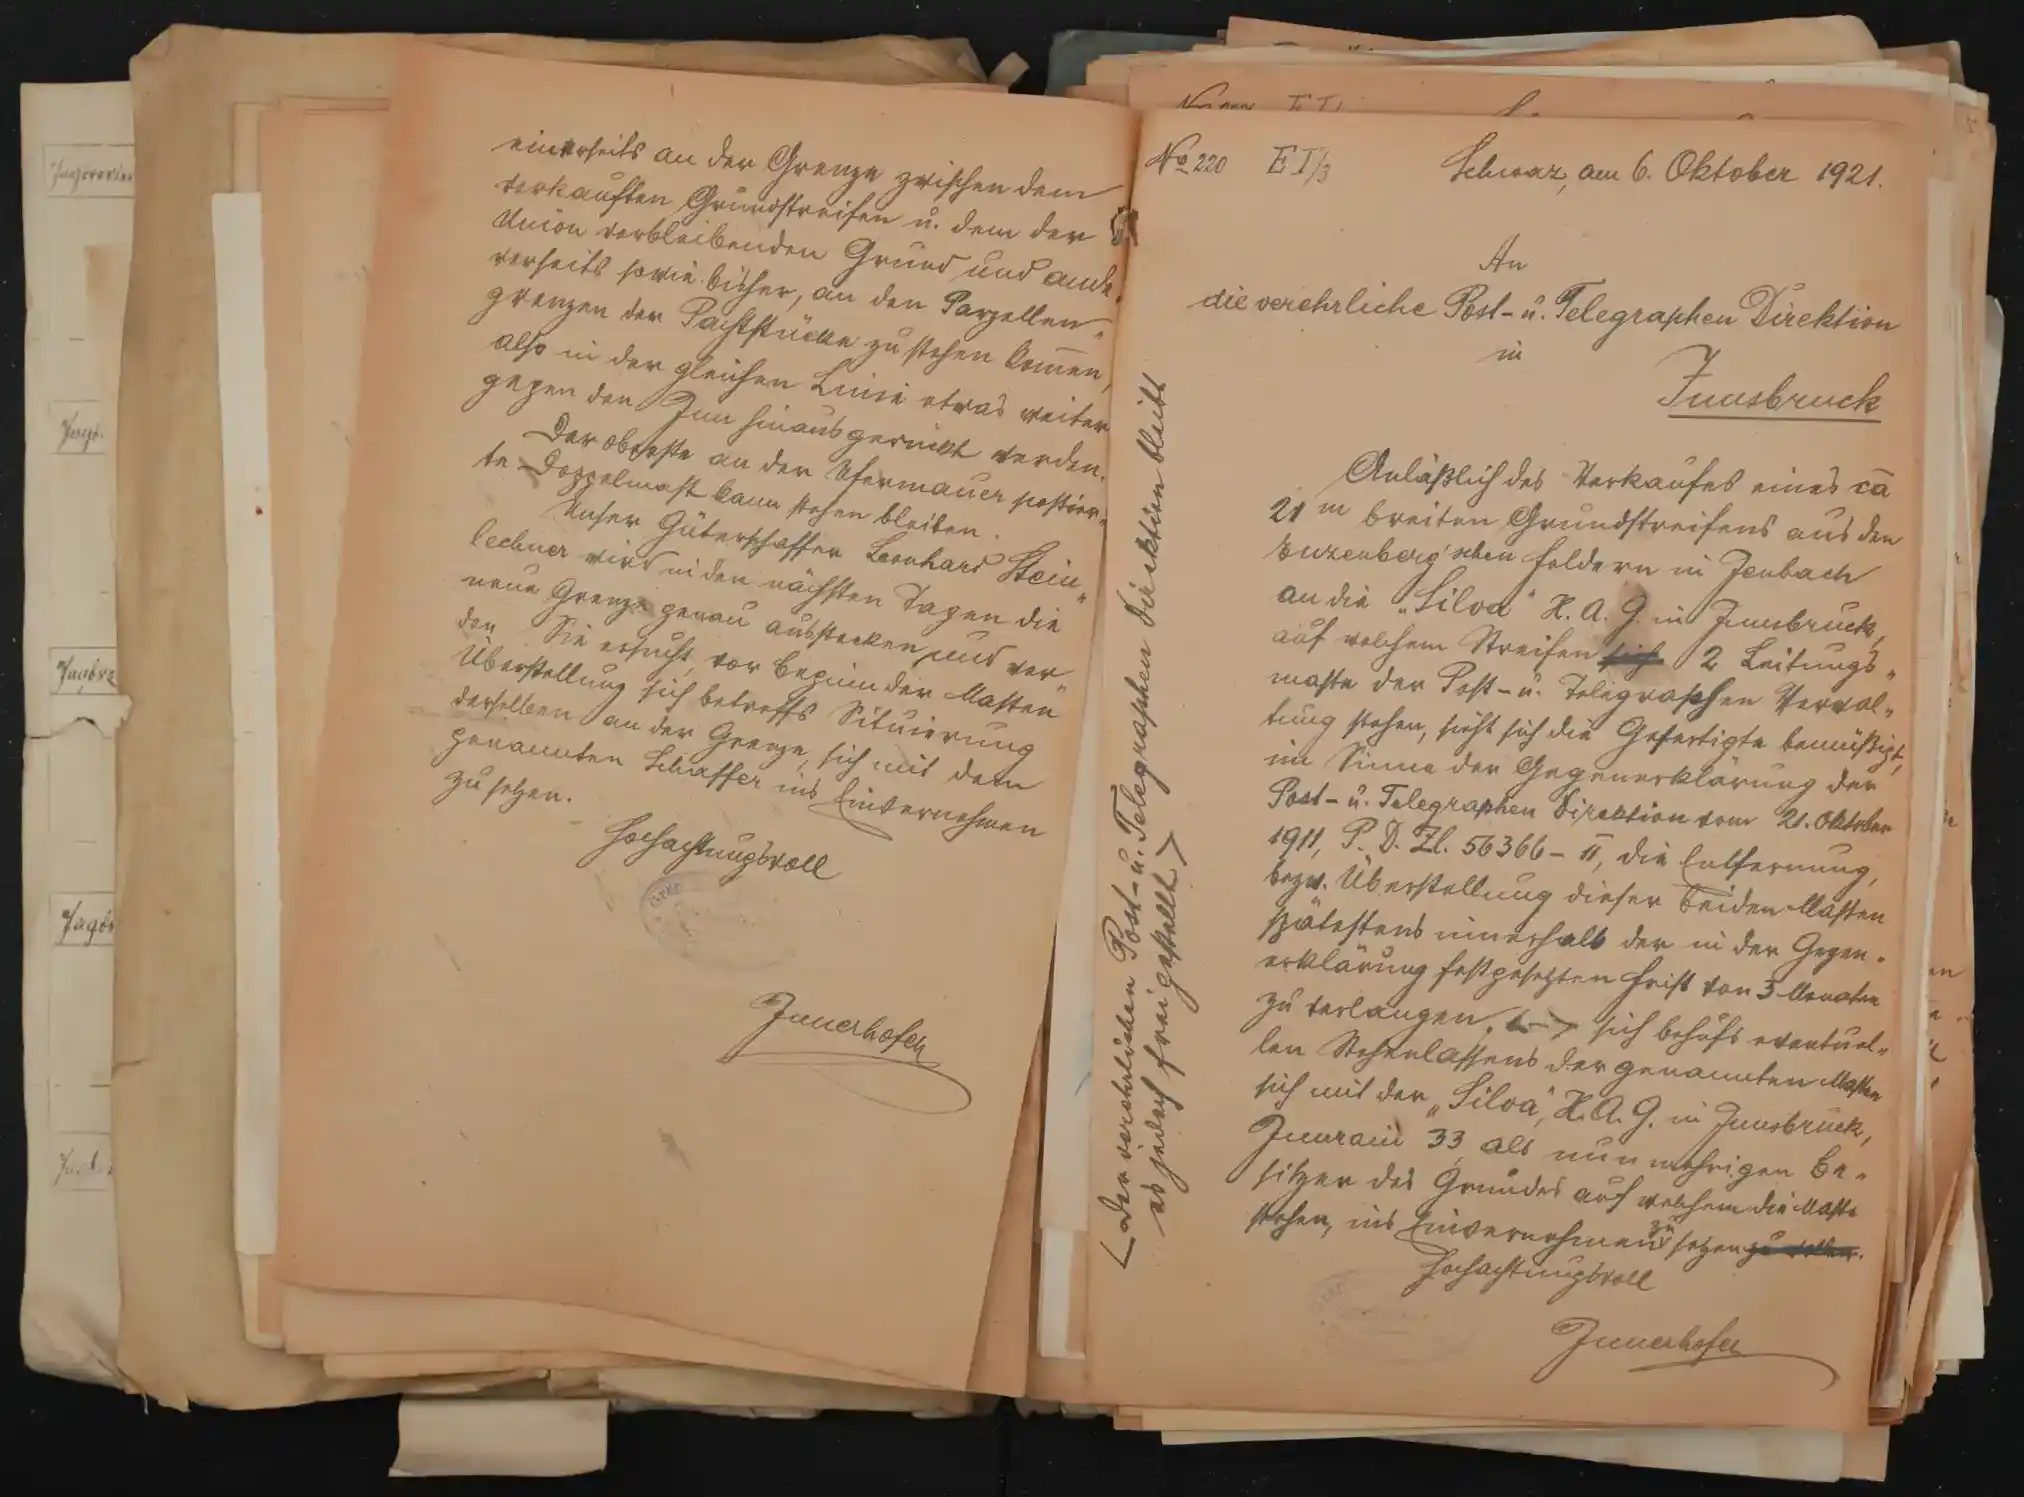 einerseits an der Grenze zwischen dem
verkauften Grundstreifen u. dem der
Union verbleibenden Grund und ande-
rerseits sowie bisher, an den Parzellen-
grenzen der Pachtstücke zu stehen kom̄en,
also in der gleichen Linie etwas weiter
gegen den Inn hinausgerückt werden.
Der oberste an der Ufermauer postier-
te Doppelmast kann stehen bleiben.
Unser Güterschaffer Leonhard Stein-
lechner wird in den nächsten Tagen die
neue Grenze genau ausstecken und wer-
den Sie ersucht, vor Beginn der Masten
Überstellung sich betreffs Situierung
derselben an der Grenze, sich mit dem
genannten Schaffer ins Einvernehmen
zu setzen.
Hochachtungsvoll
Innerhofer
No 220 E I/3 Schwaz, am 6. Oktober 1921.
An
die verehrliche Post- u. Telegraphen Direktion
in
Innsbruck
Anläßlich des Verkaufes eines ca
21 m breiten Grundstreifens aus den
Enzenberg'schen Feldern in Jenbach
an die „Silva" H. A. G. in Innsbruck,
auf welchem Streifen sich 2 Leitungs-
maste der Post- u. Telegraphen Verwal-
tung stehen, sieht sich die Gefertigte bemüßigt,
im Sinne der Gegenerklärung der
Post- u. Telegraphen Direktion vom 21. Oktober
1911, P. D. Zl. 56366 - II, die Entfernung,
bezw. Überstellung dieser beiden Masten
spätestens innerhalb der in der Gegen-
erklärung festgesetzten Frist von 3 Monaten
zu verlangen. <—> sich behufs eventuel-
len Stehenlassens der genannten Masten
sich mit der „Silva", H. A. G. in Innsbruck,
Innrain 33, als nunmehrigen Be-
sitzer des Grundes auf welchem die Maste
stehen, ins Einvernehmen zu setzen zu wollen.
Hochachtungsvoll
Innerhofer
<Der verehrlichen Post- u. Telegraphen Direktion bleibt
es jedoch freigestellt>